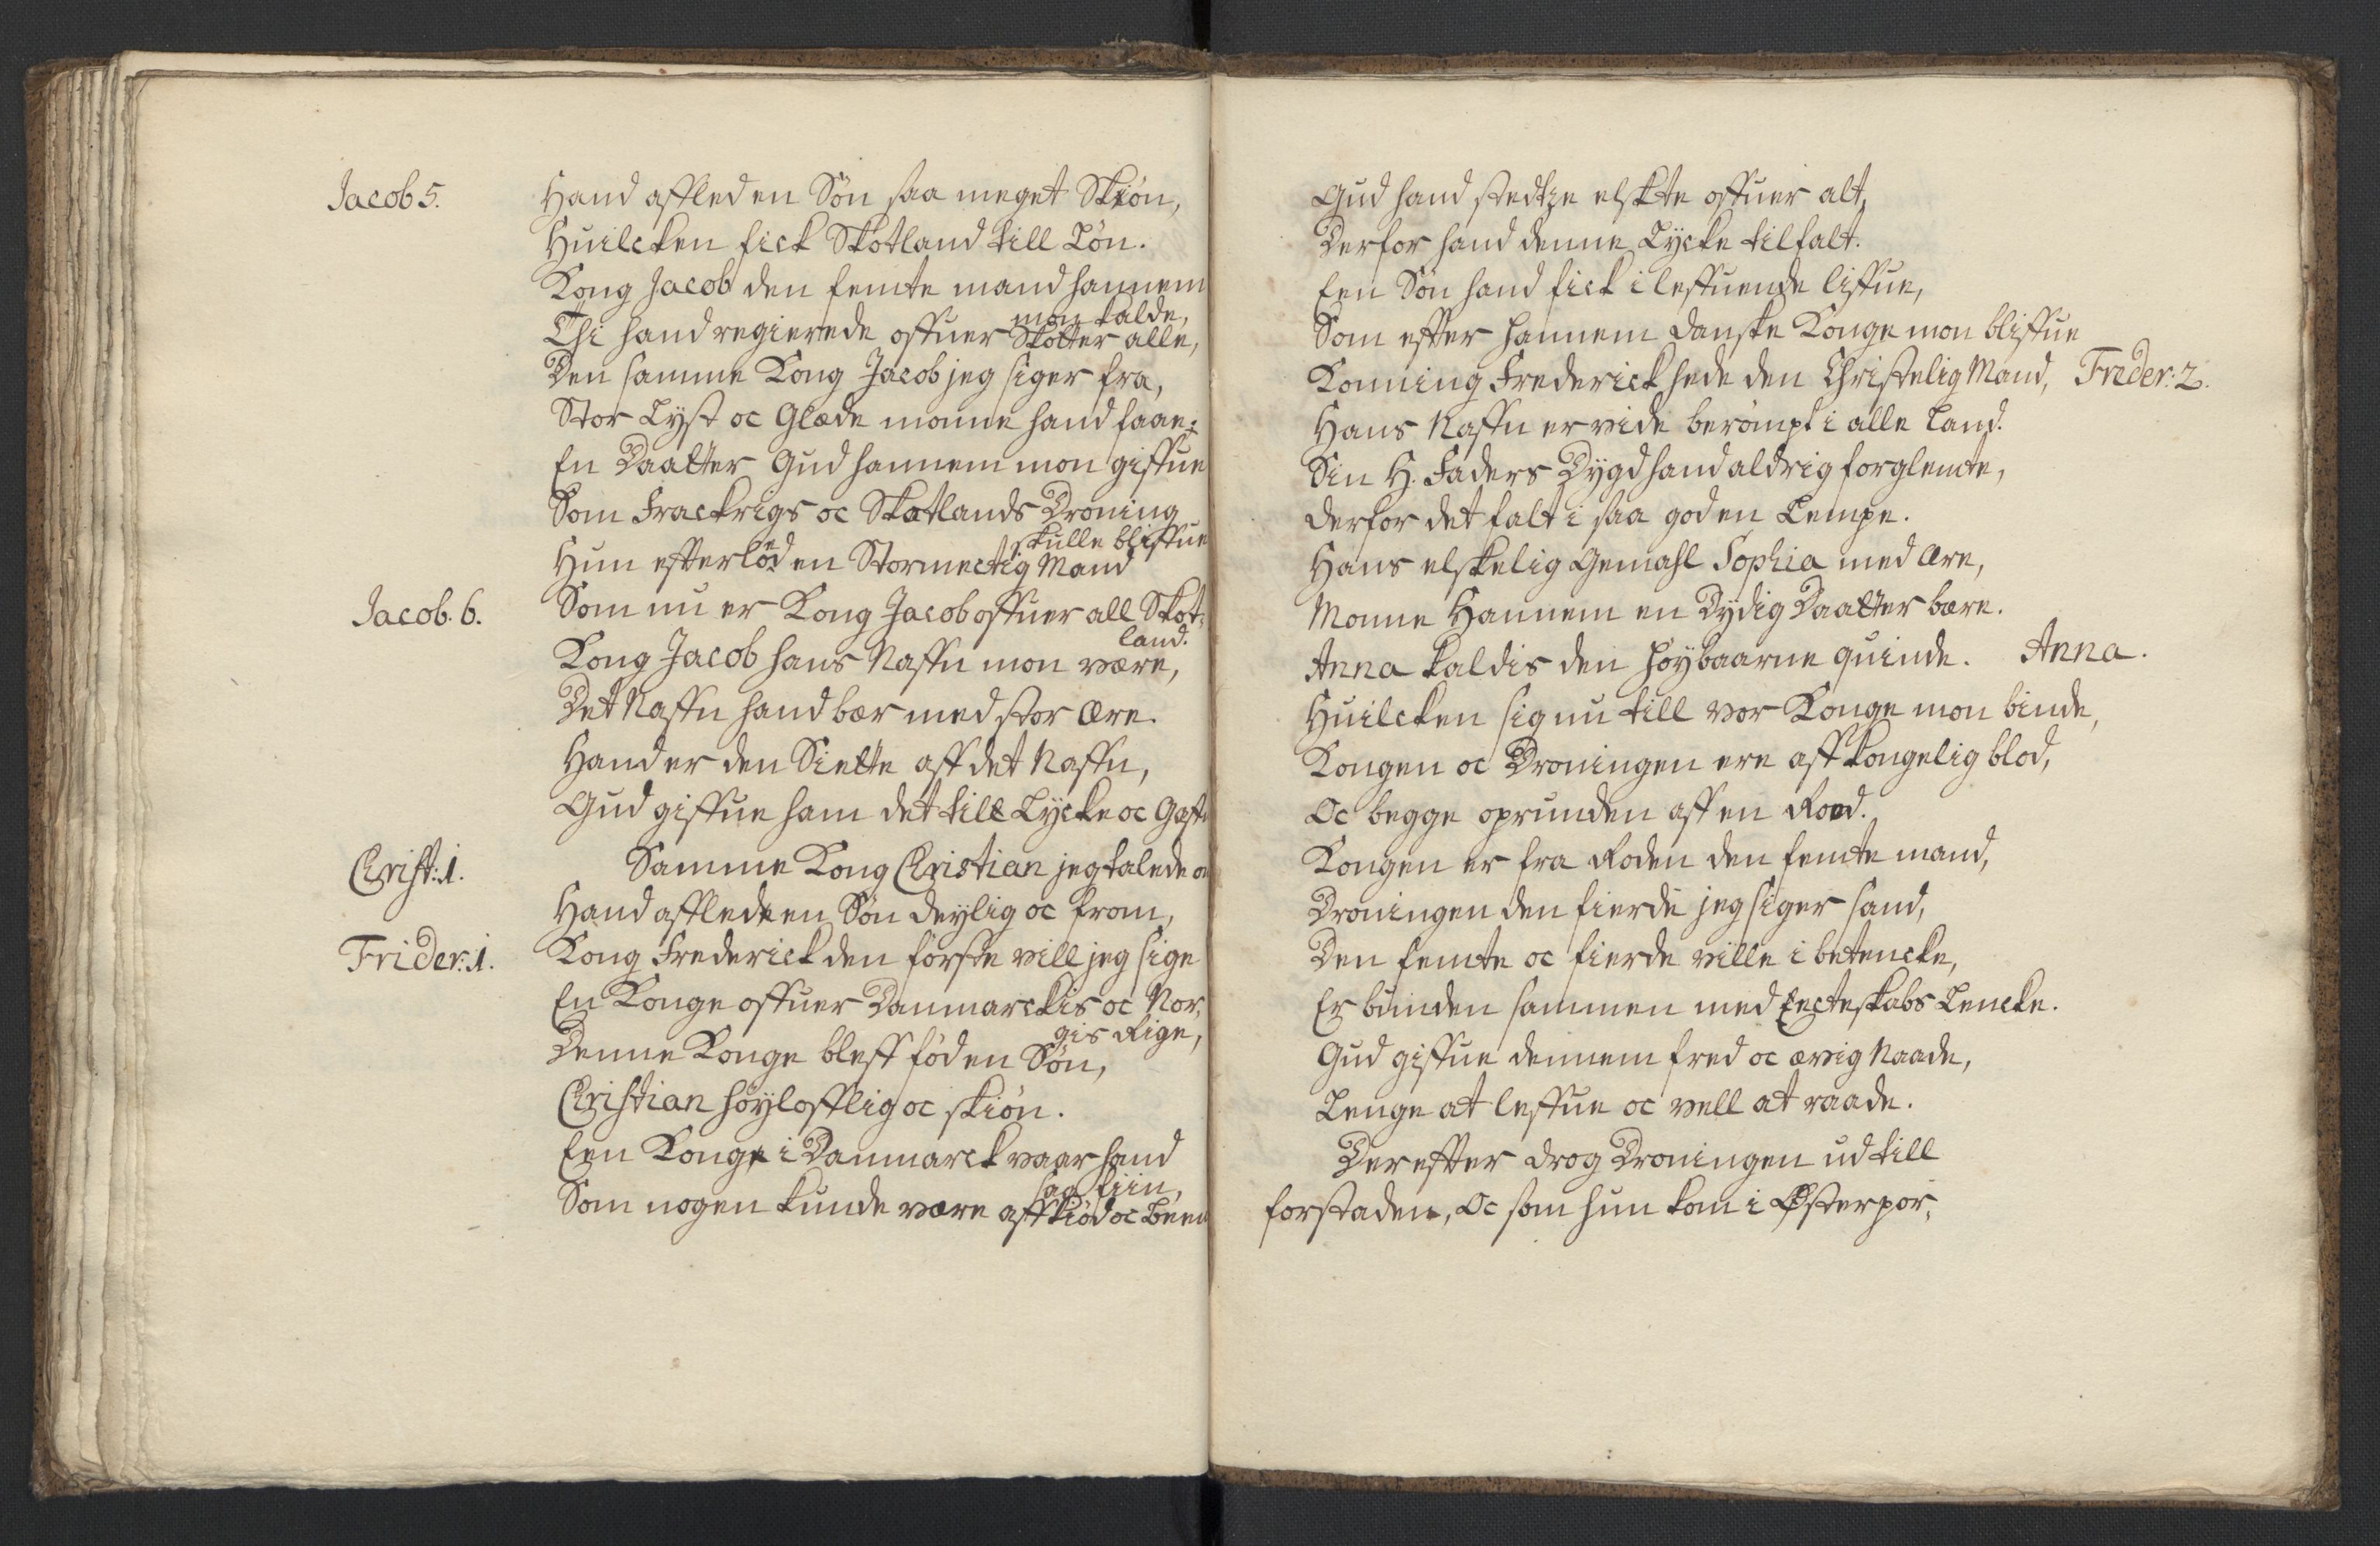 Jacob 5.
Hand affled en Søn saa meget Skiøn,
Huilcken fick Skotland till Løn.
Kong Jacob den femte mand hannem
mon kalde,
Thi hand regierede offuer Skotter alle,
Den samme Kong Jacob jeg siger fra,
Stor Lyst oc Glæde monne hand faae:
En Daatter Gud hannem mon giffue
Som Franckrigs oc Skotlands Droning
skulle bliffue
Hun efterlød en Stormectig Mand
Jacob. 6.
Som nu er Kong Jacob offuer all Skot-
land.
Kong Jacob hans Naffn mon være,
Det Naffn hand bær med stor Ære.
Hand er den Siette aff det Naffn,
Gud giffue ham det till Lycke oc Gaffn
Christ: 1.
Samme Kong Christian jeg talede om
Hand affled en Søn deylig oc from,
Frider: 1.
Kong Frederick den første vill jeg sige
En Konge offuer Danmarckis oc Nor-
gis Rige,
Denne Konge bleff fød en Søn,
Christian høyloffLig oc skiøn.
Een Konge i Danmarck vaar hand
saa fiin,
Som nogen kunde være aff kiød oc Been
Gud hand stedtze elskte offuer alt,
Derfor hand denne Lycke tilfalt.
Een Søn hand fick i leffuende liffue,
Som efter hannem danske Konge mon bliffue
Konning Frederick hede den Christelig Mand,
Frider: 2.
Hans Naffn er vide berømpt i alle Land.
Sin H. Faders Dygd hand aldrig forglemte,
derfor det falt i saa god en Lempe.
Hans elskelig Gemahl Sophia med Ære,
Monne Hannem en Dydig Daatter bære.
Anna kaldis den Høybaarne quinde.
Anna.
Huilcken sig nu till vor Konge mon binde,
Kongen oc Droningen ere aff kongelig blod,
Oc begge oprunden aff en Rood.
Kongen er fra Roden den femte mand,
Droningen den fierde jeg siger sand,
Den femte oc fierde ville i betencke,
Er bunden sammen med Ecteskabs Lencke.
Gud giffue dennem fred oc ævig Naade,
Lenge at leffue oc vell at raade.
Derefter drog Droningen ud till
forstaden, Oc som hun kom i Østerpor,